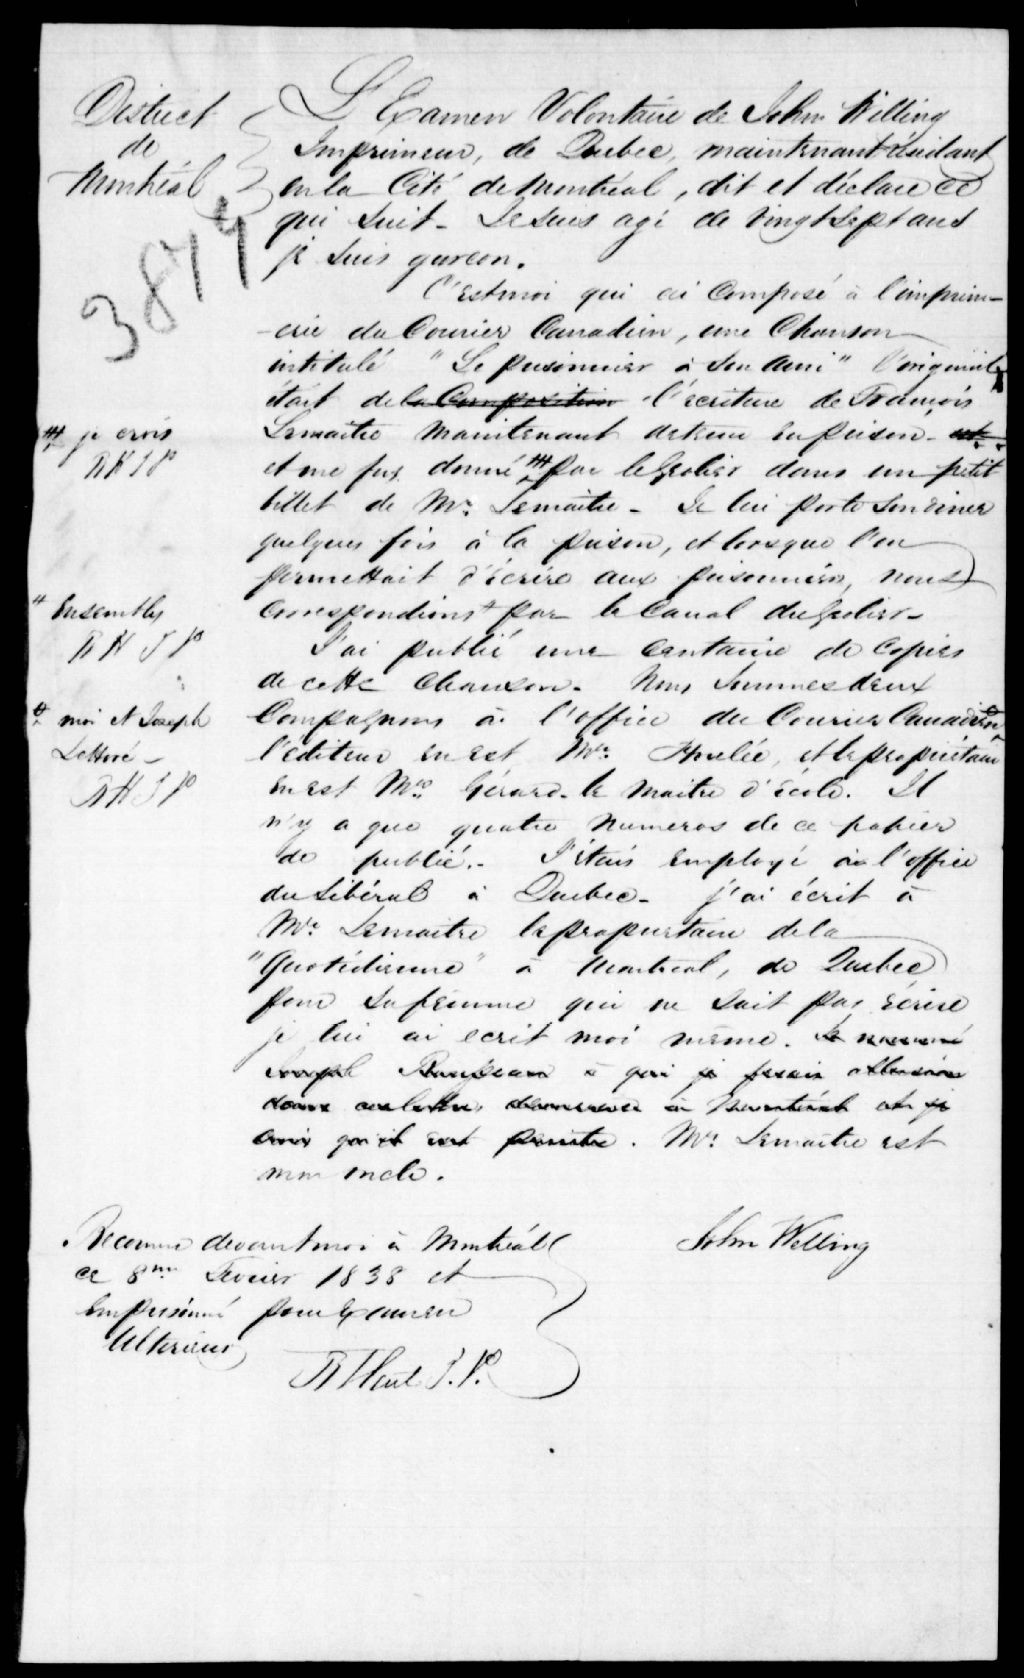 District
de
Montréal
3874
L'Examen Volontaire de John Willing
Imprimeur, de Quebec, maintenant résidant
en la Cité de Montréal, dit et déclare ce
qui suit - Je suis agé de vingt sept ans
je suis garcon.
C'est moi qui ai composé à l'imprim-
-erie du Courier Canadien, une Chanson
intitulé "Le prisonnier à son ami" l'original
était de la Composition l'écriture de François
# je crois
Lemaitre maintenant detenu en prison - et
RH J P
et me fus donné # par le Geolier dans un petit
billet de Mr. Lemaitre - Je lui porte son diner
quelques fois à la prison, et lorsque l'on
permettait d'écrire aux prisonniers, nous
+ Ensembles
correspondions + par le Canal du Geolier -
RH J P
J'ai publié une centaine de copies
de cette chanson. Nous sommes deux
moi & Joseph
Compagnons à l'office du Courier Canadien
Lettoré -
l'éditeur en est Mr. , et le propriétaire
RH J P
en est Mr. Gérard - le maitre d'école. Il
n'y a que quatre numeros de ce papier
de publié. - J'étais employé à l'office
du Libéral à Quebec - j'ai écrit à
Mr. Lemaitre le propriétaire de la
"Quotidienne" à Montreal, de Quebec
pour sa femme qui ne sait pas écrire
je lui ai ecrit moi même. Le nommé
Joseph à qui je fesais allusion
dans demeure à Montréal et je
crois qu'il est peintre. Mr. Lemaitre est
mon oncle.
Reconnu devant moi à Montréal
John Welling
ce 8me. Fevrier 1838 et
Emprisonné pour Examen
Ulterieur
R Hart J. P.